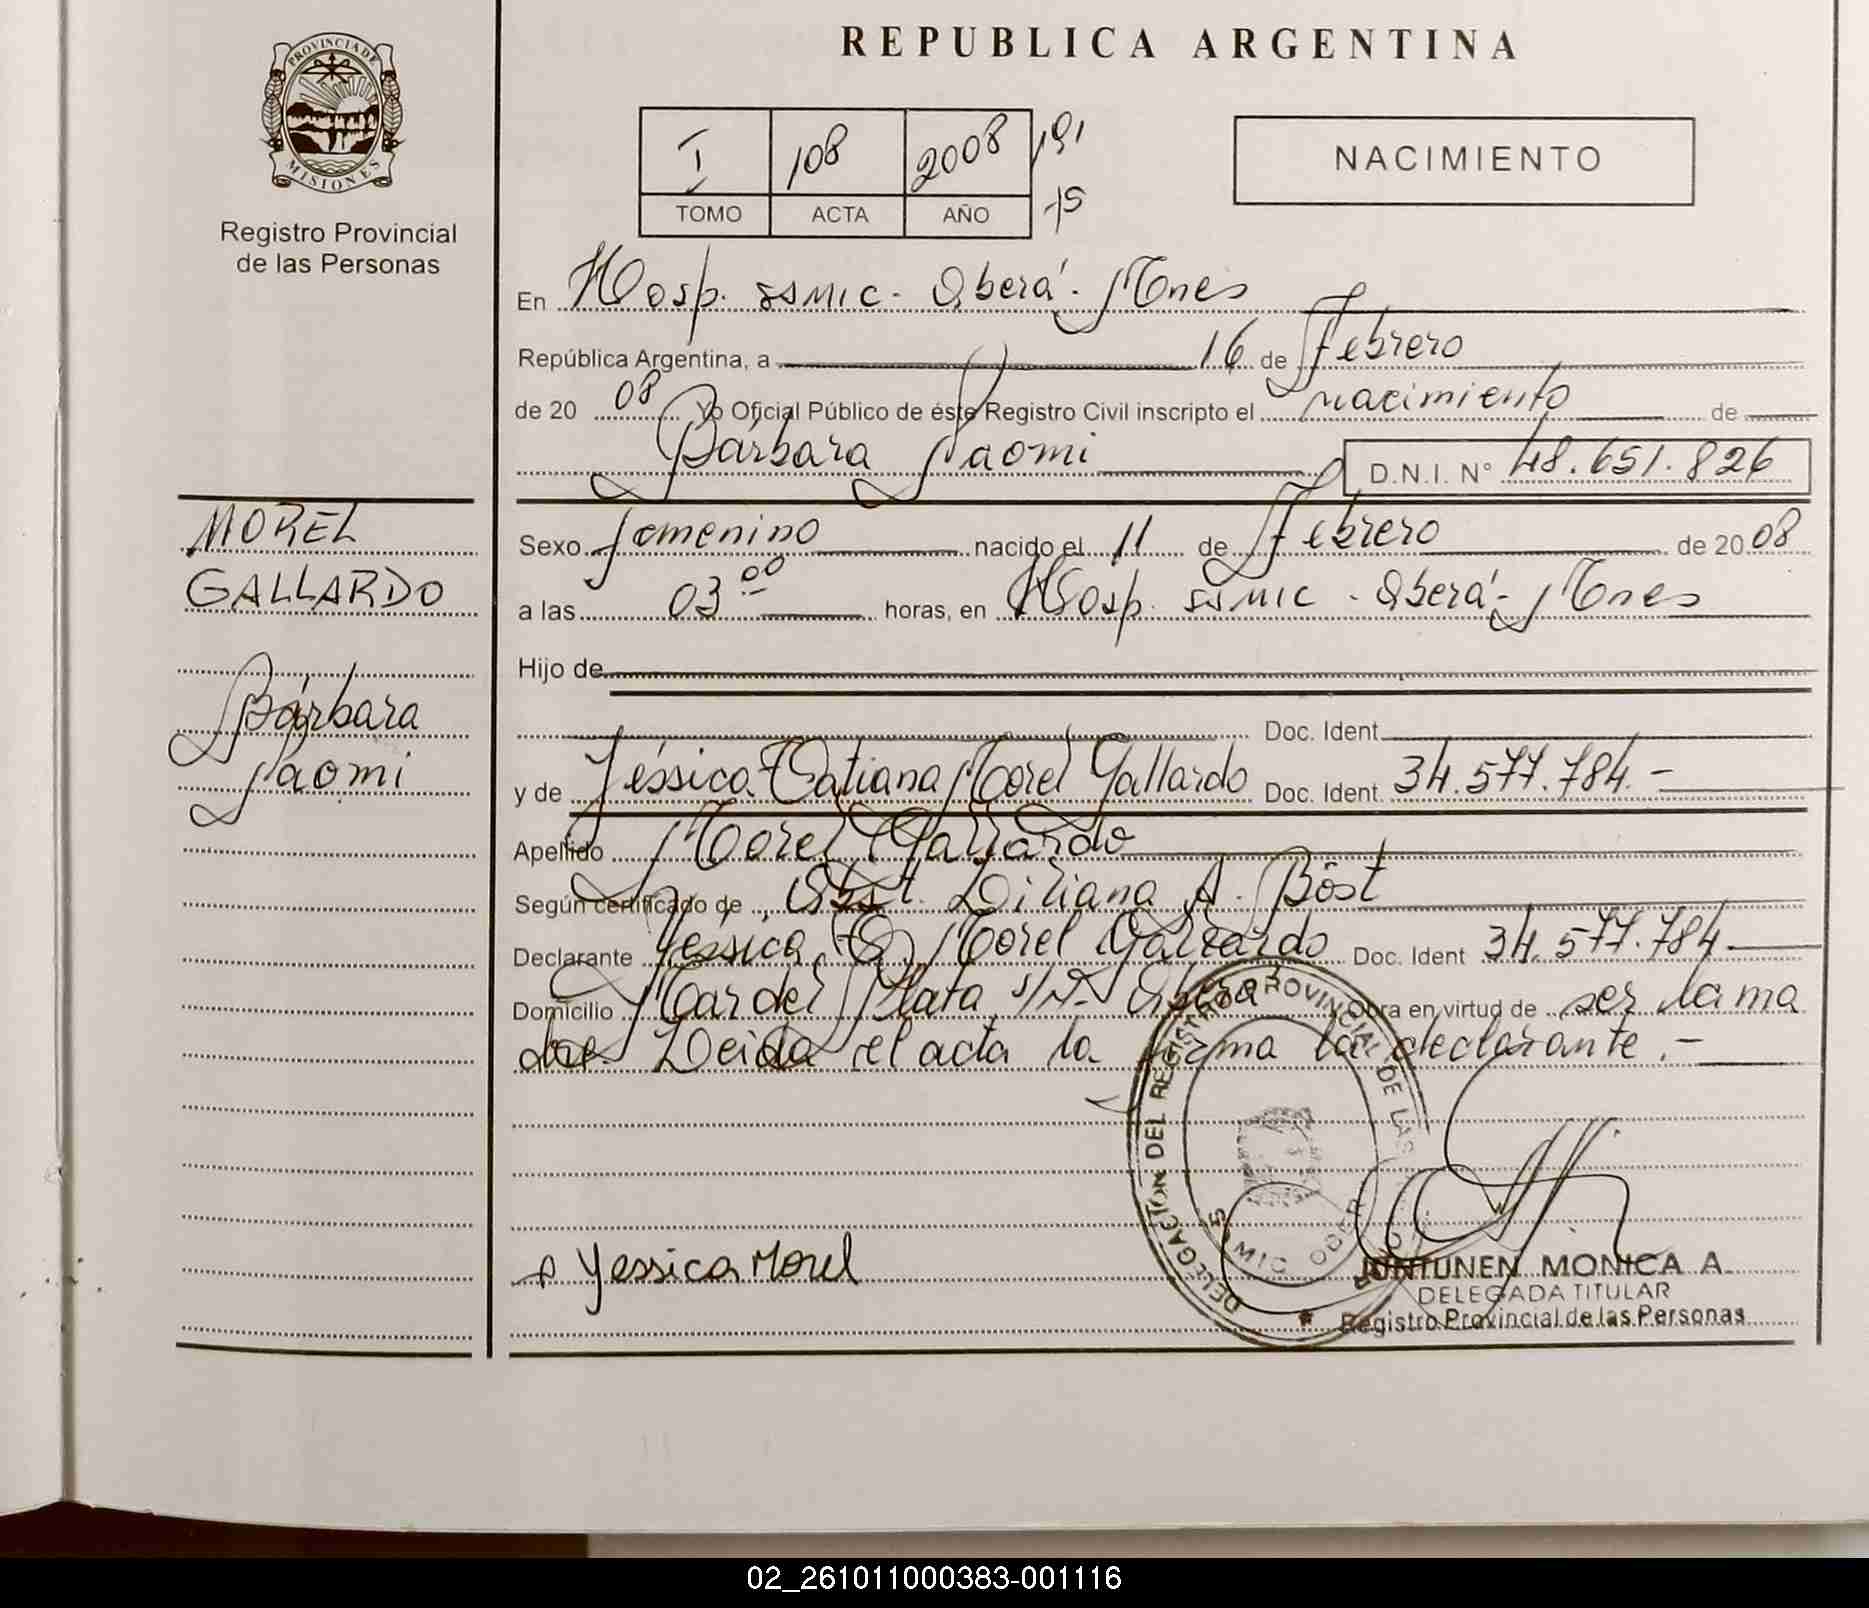 REPUBLICA ARGENTINA
PROVINCIA DE MISIONES
Registro Provincial
de las Personas
I 108 2008 191
TOMO ACTA AÑO 75
NACIMIENTO
En Hosp. SSMIC - Oberá - Mnes
República Argentina, a 16 de Febrero
de 20 08 Yo Oficial Público de éste Registro Civil inscripto el nacimiento de
Bárbara Naomi D.N.I. N° 48.651.826
MOREL
GALLARDO
Bárbara
Naomi
Sexo femenino nacido el 11 de Febrero de 20 08
a las 03 00 horas, en Hosp. SSMIC - Oberá - Mnes
Hijo de
Doc. Ident.
y de Yéssica Tatiana Morel Gallardo Doc. Ident. 34.577.784.-
Apellido Morel Gallardo
Según certificado de Obst. Liliana A. Böst
Declarante Yéssica T. Morel Gallardo Doc. Ident 34.577.784
Domicilio Mar del Plata s/N° Oberá Obra en virtud de ser la ma
dre. Leida el acta la firma la declarante.-
DELEGACION DEL REGISTRO PROVINCIAL DE LAS
Yessica Morel
JUNTUNEN MONICA A.
DELEGADA TITULAR
Registro Provincial de las Personas
02_261011000383-001116